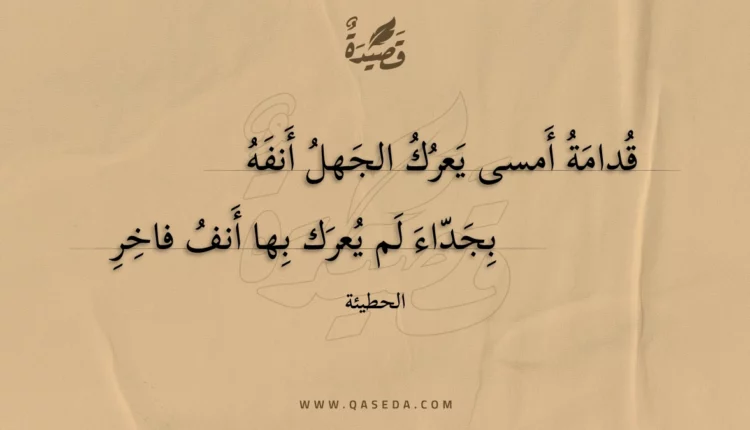 قَصِيْدَةٌ
قُدامَةُ أَمسى يَعرُكُ الجَهلُ أَنفَهُ
بِجَدّاءَ لَم يُعرَك بِها أَنفُ فاخِرِ
الحطيئة
WWW.QASEDA.COM